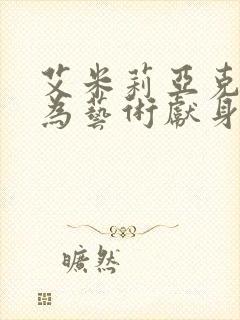 艾米莉亞克
為藝術獻身
曠然